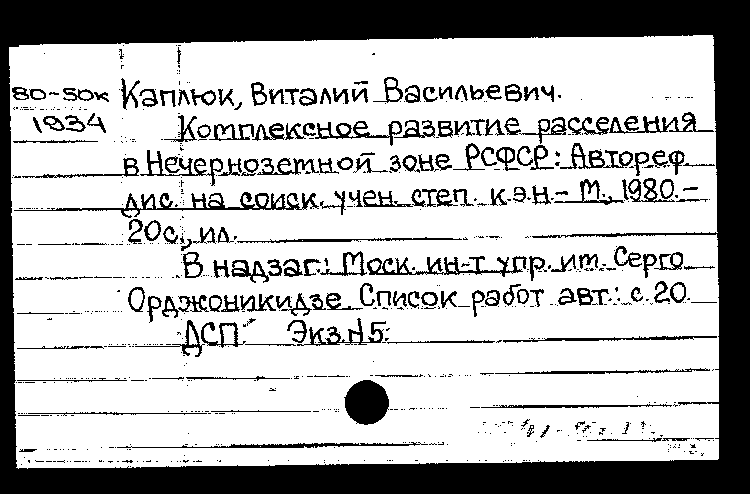 80-50к Каплюк, Виталий Васильевич.
1934 Комплексное развитие расселения
в Нечерноземной зоне РСФСР: Автореф.
дис. на соиск. учен. степ. к.э.н.- М., 1980.-
20с., ил.
В надзаг.: Моск. ин-т упр. им. Серго
Орджоникидзе. Список работ авт.: с.20.
ДСП. Экз.№5.